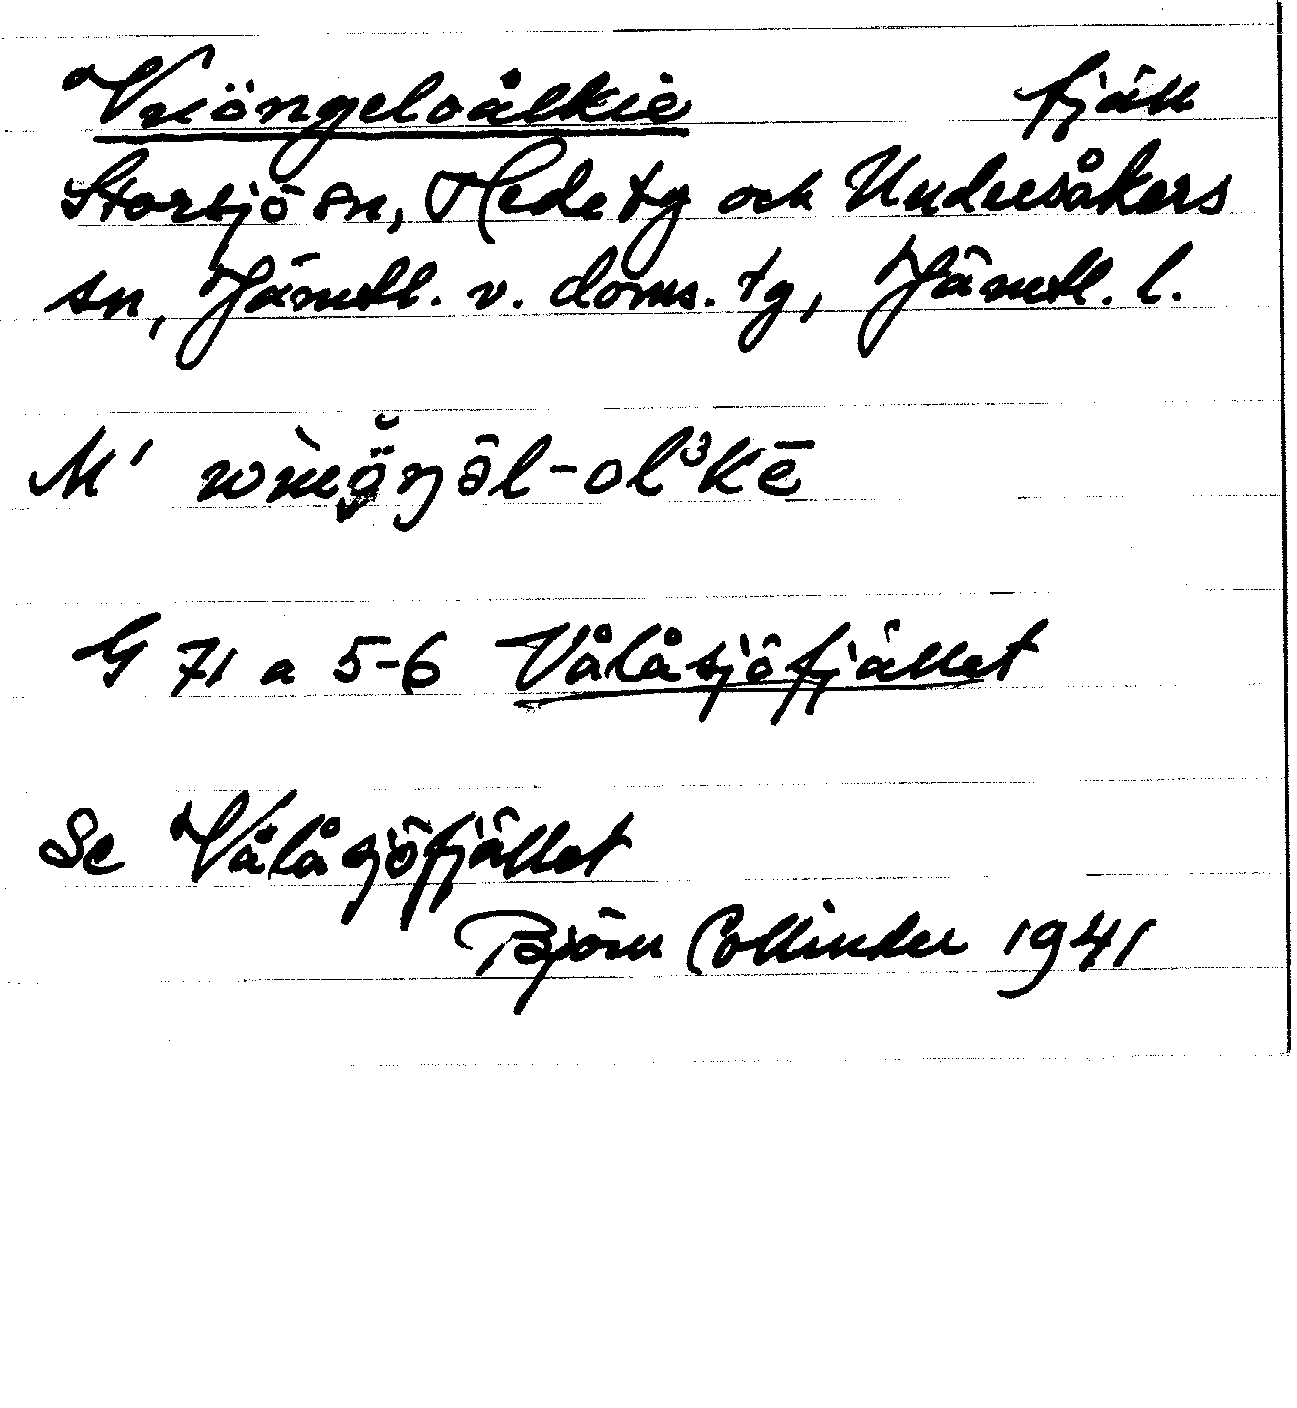 Vriöngeloålkie fjäll
Storsjö sn, Hede tg och Undersåkers
sn, Jämtl. v. doms. tg, Jämtl. l.
M'
G 71 a 5-6 Vålåsjöfjället
Se Vålåsjöfjället
Björn Collinder 1941